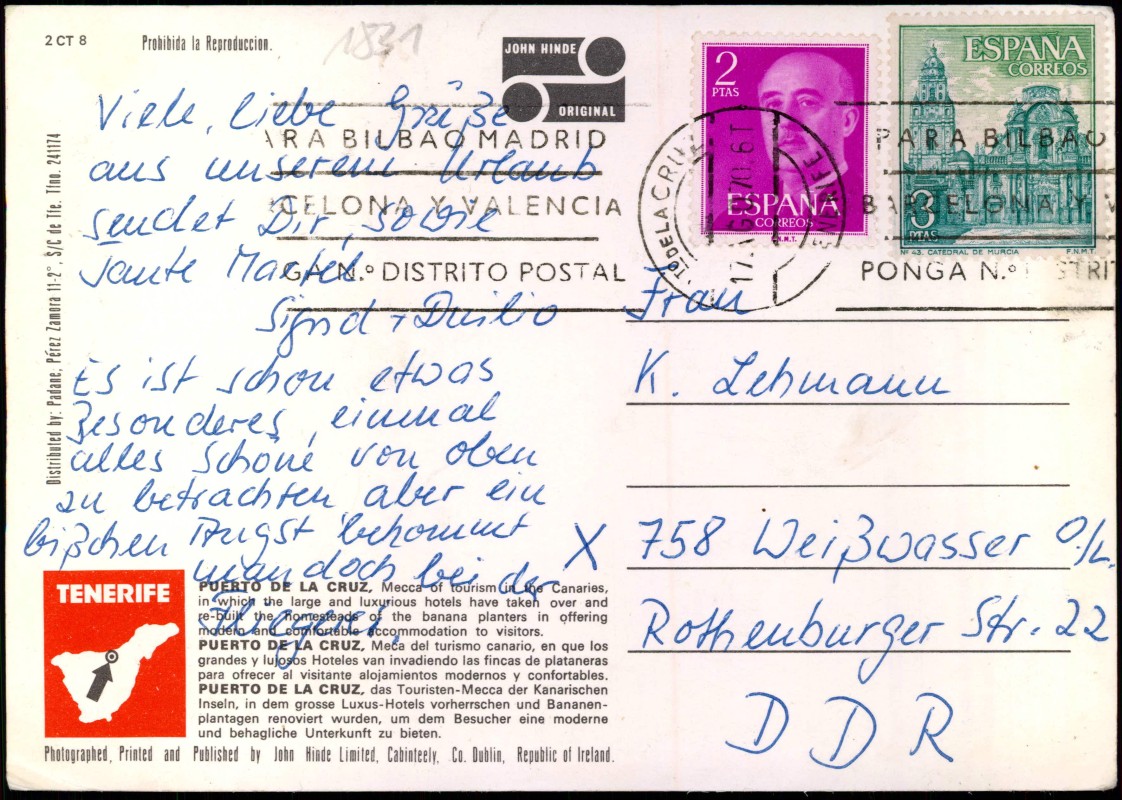 2 CT 8
Prohibida la Reproduccion.
1831
JOHN HINDE
ORIGINAL
Viele, liebe Grüße
aus unserem Urlaub
sendet Dir, sowie
Tante Martel
Es ist schon etwas
Besonderes, einmal
alles Schöne von oben
zu betrachten, aber ein
bißchen Angst bekommt
man doch bei der
Fliegerei.
X
Frau
K. Lehmann
758 Weißwasser O/L.
Rothenburger Str. 22
DDR
2
PTAS
ESPAÑA
CORREOS
F.N.M.T.
ESPAÑA
CORREOS
3
PTAS
Nº 43. CATEDRAL DE MURCIA
F.N.M.T.
ARA BILBAO MADRID
CELONA Y VALENCIA
GA N.º DISTRITO POSTAL
TO DE LA CRUZ
TENERIFE
PARA BILBAO
BARCELONA Y V
PONGA N.º DISTRIT
Distributed by: Padane, Pérez Zamora 11-2°, S/C de Tfe. Tfno. 241174
TENERIFE
PUERTO DE LA CRUZ, Mecca of tourism in the Canaries,
in which the large and luxurious hotels have taken over and
re-built the homesteads of the banana planters in offering
modern and comfortable accommodation to visitors.
PUERTO DE LA CRUZ, Meca del turismo canario, en que los
grandes y lujosos Hoteles van invadiendo las fincas de plataneras
para ofrecer al visitante alojamientos modernos y confortables.
PUERTO DE LA CRUZ, das Touristen-Mecca der Kanarischen
Inseln, in dem grosse Luxus-Hotels vorherrschen und Bananen-
plantagen renoviert wurden, um dem Besucher eine moderne
und behagliche Unterkunft zu bieten.
Photographed, Printed and Published by John Hinde Limited, Cabinteely, Co. Dublin, Republic of Ireland.